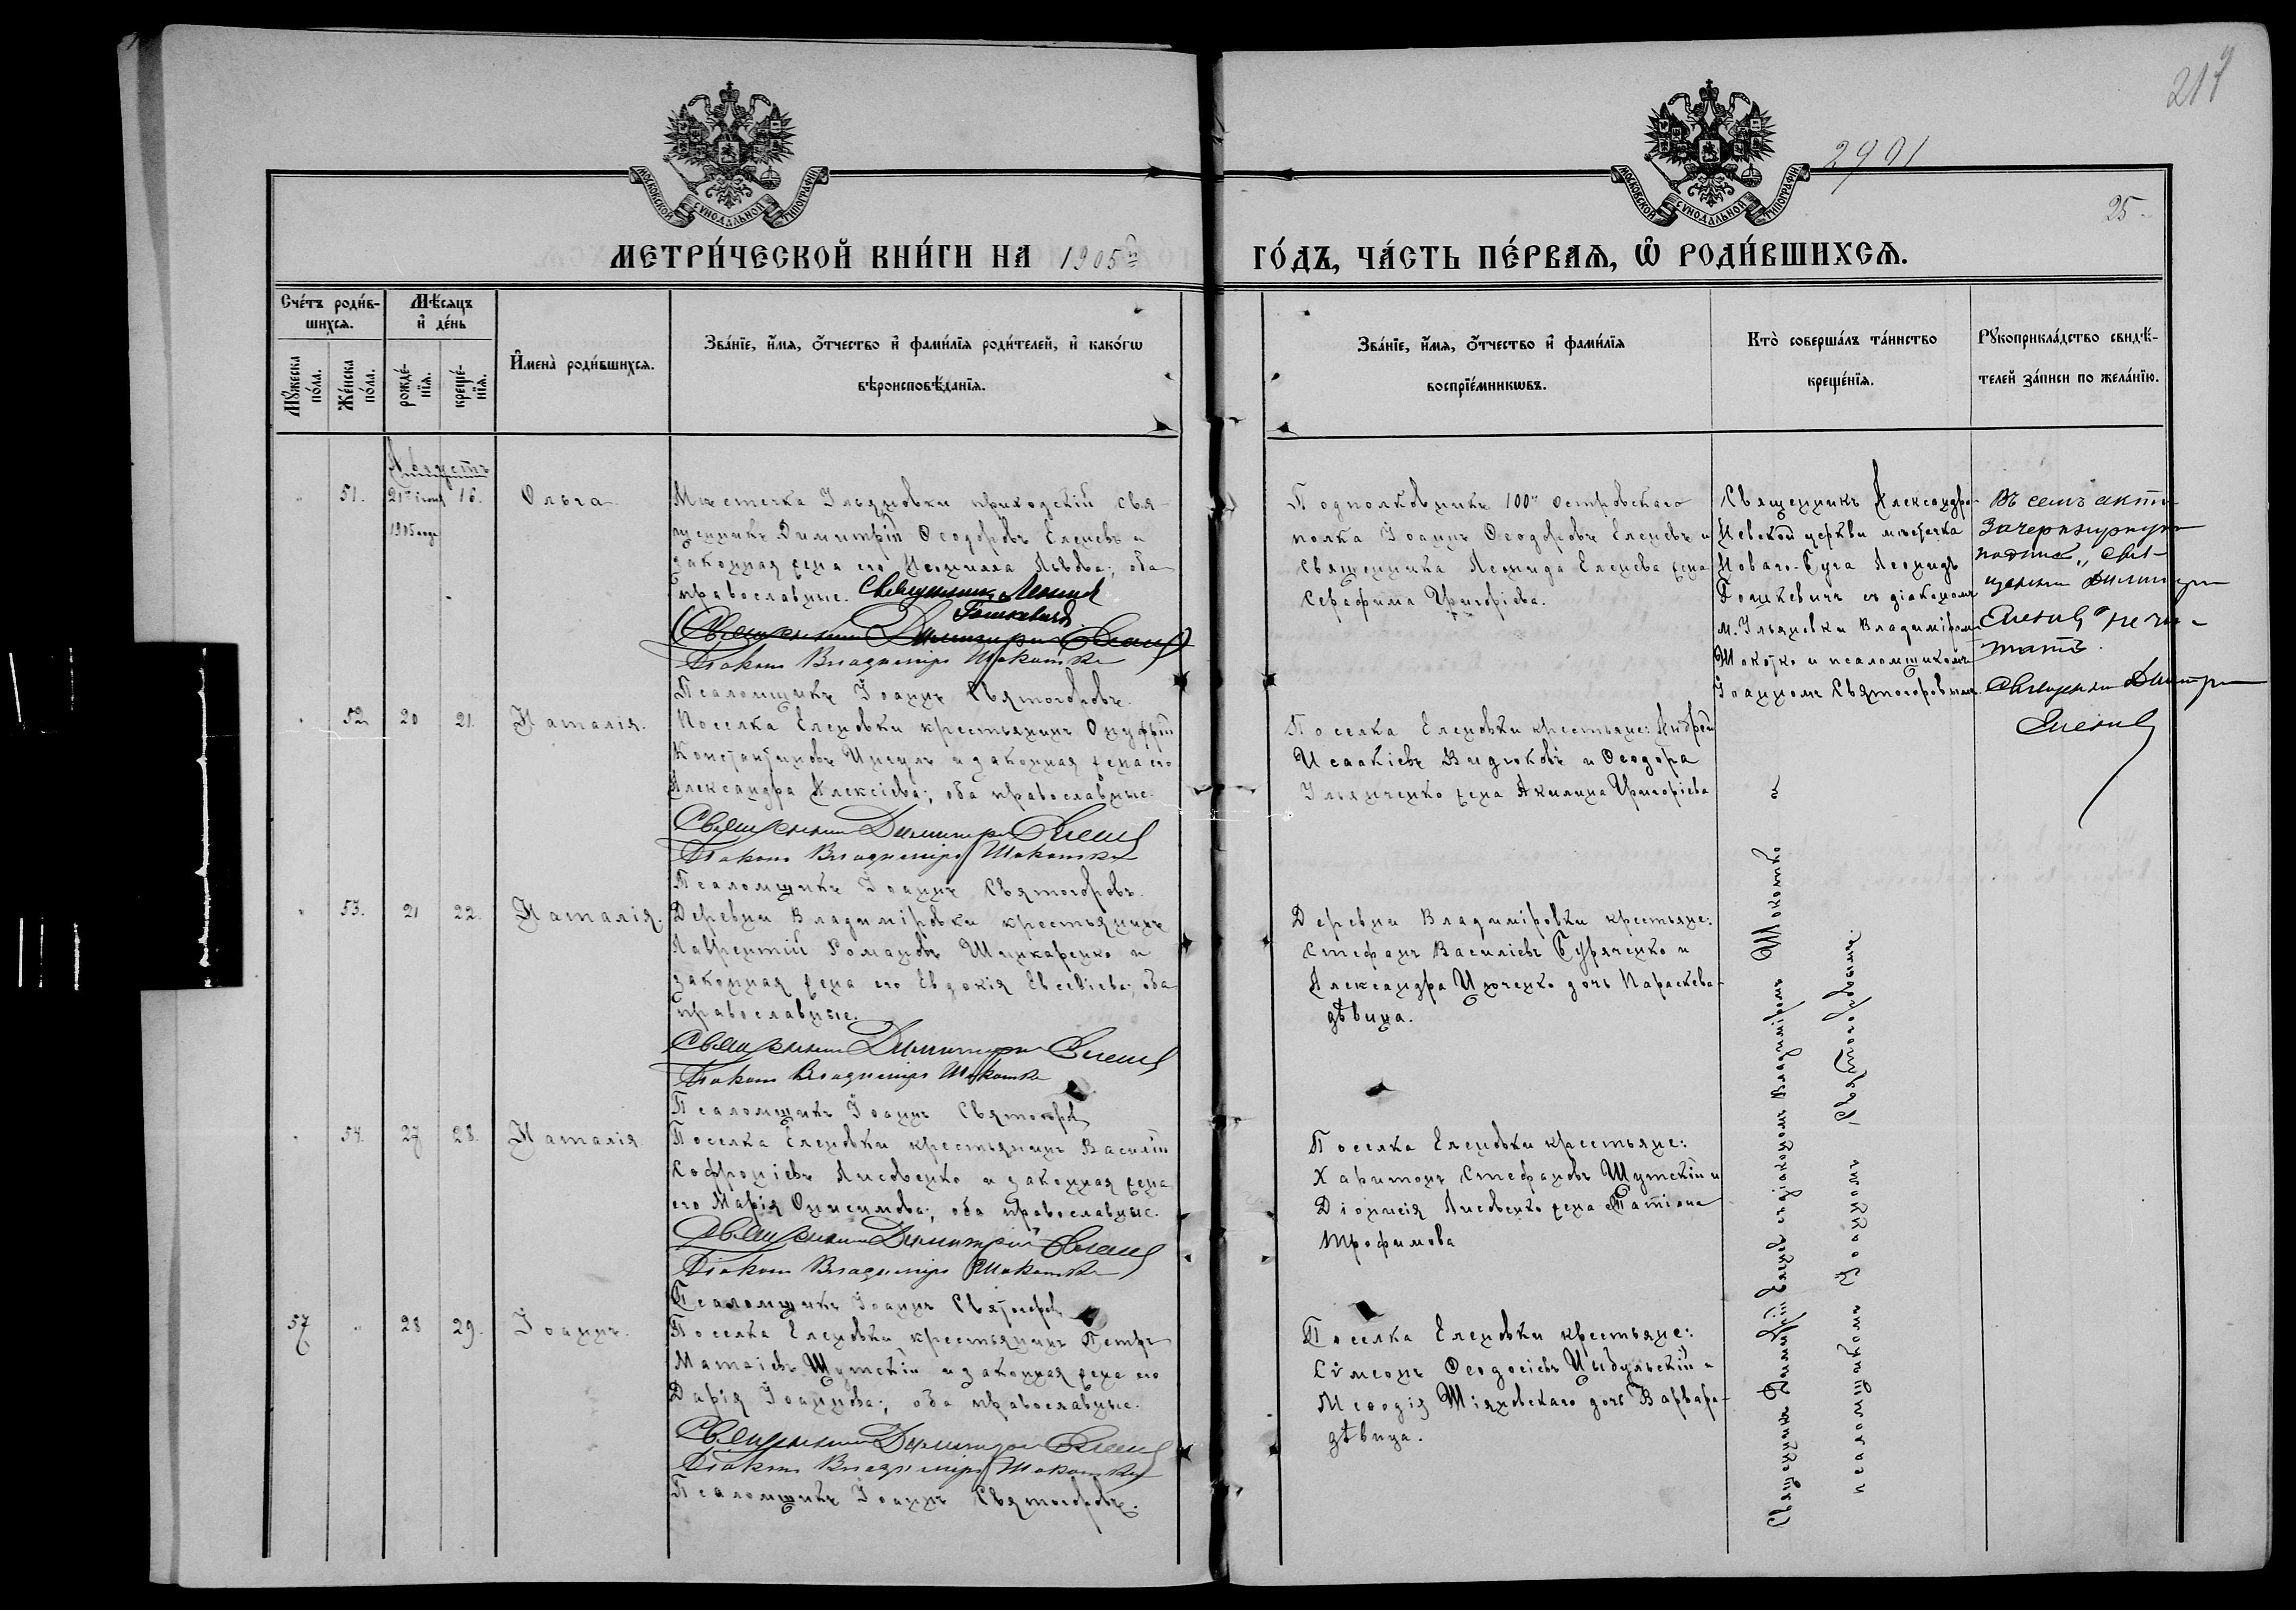 217
2901
25
МОСКОВСКОЙ СѴНОДАЛЬНОЙ ТИПОГРАФІИ
МОСКОВСКОЙ СѴНОДАЛЬНОЙ ТИПОГРАФІИ
МЕТРИ́ЧЕСКОЙ КНИ́ГИ НА 1905й ГО́ДЪ, ЧА́СТЬ ПЕ́РВАѦ, Ѿ РОДИ́ВШИХСѦ.
Сче́тъ роди́в-
шихсѧ.
Мѣ́сяцъ
и҆ де́нь
Мꙋ́жеска по́ла.
Же́нска по́ла.
рожде́-
нїѧ.
креще́-
нїѧ.
И҆мена̀ роди́вшихсѧ.
Зва́нїе, и҆́мѧ, ѻ҆́тчество и҆ фами́лїѧ роди́телей, и҆ како́гѡ
вѣроисповѣ́данїѧ.
Зва́нїе, и҆́мѧ, ѻ҆́тчество и҆ фами́лїѧ
воспрїе́мникѡвъ.
Кто̀ соверша́лъ та́инство
креще́нїѧ.
Рꙋкоприкла́дство свидѣ́-
телей за́писи по жела́нїю.
Августъ
51. 21го іюня 1905 года 16. Ольга.
Мѣстечка Ильяновки приходскій свя-
щенникъ Димитрій Ѳеодоровъ Еленевъ и
законная жена его Неонилла Львова; оба
православные. Священникъ Леонидъ
Гошкевичъ
Священникъ Димитрій Еленев
Діаконъ Владиміръ Шокотко
Псаломщикъ Іоаннъ Святогоровъ.
Подполковникъ 100го Островскаго
полка Іоаннъ Ѳеодоровъ Еленевъ и
священника Леонида Еленева жена
Серафима Григоріева.
Священникъ Александро-
Невской церкви мѣстечка
Новаго-Буга Леонидъ
Гошкевичъ съ діакономъ
м. Ильяновки Владиміромъ
Шокотко и псаломщикомъ
Іоанномъ Святогоровымъ.
Въ семъ актѣ
зачеркнутую
подпись „Свя-
щенникъ Димитрій
Еленевъ" не чи-
тать.
Священникъ Димитрій
Еленев
52. 20 21. Наталія.
Поселка Еленовки крестьянинъ Онуфрій
Константиновъ Цигуль и законная жена его
Александра Алексіева; оба православные.
Священникъ Димитрій Еленев
Діаконъ Владиміръ Шокотко
Псаломщикъ Іоаннъ Святогоровъ.
Поселка Еленовки крестьяне: Андрей
Исаакіевъ Видюковъ и Ѳеодора
Ильянченко жена Акилина Григоріева
53. 21 22. Наталія.
Деревни Владиміровки крестьянинъ
Лаврентій Романовъ Шинкаренко и
законная жена его Евдокія Евсевіева; оба
православные.
Священникъ Димитрій Еленев
Діаконъ Владиміръ Шокотко
Псаломщикъ Іоаннъ Святогоровъ
Деревни Владиміровки крестьяне:
Стефанъ Василіевъ Буряченко и
Александра Ищенко дочь Параскева-
дѣвица.
54. 27 28. Наталія
Поселка Еленовки крестьянинъ Василій
Софроніевъ Лисовенко и законная жена
его Марія Онисимова; оба православные.
Священникъ Димитрій Еленев
Діаконъ Владиміръ Шокотко
Псаломщикъ Іоаннъ Святогоровъ
Поселка Еленовки крестьяне:
Харитонъ Стефановъ Шутскій и
Діонисія Лисовенко жена Татіана
Трофимова
57 28 29. Іоаннъ.
Поселка Еленовки крестьянинъ Петръ
Матѳіевъ Шутскій и законная жена его
Дарія Іоаннова; оба православные.
Священникъ Димитрій Еленев
Діаконъ Владиміръ Шокотко
Псаломщикъ Іоаннъ Святогоровъ.
Поселка Еленовки крестьяне:
Сѵмеонъ Ѳеодосіевъ Цыбульскій и
Меѳодія Шіяновскаго дочь Варвара-
дѣвица.
Священникъ Димитрій Еленевъ съ діакономъ Владиміромъ Шокотко и
псаломщикомъ Іоанномъ Святогоровымъ.